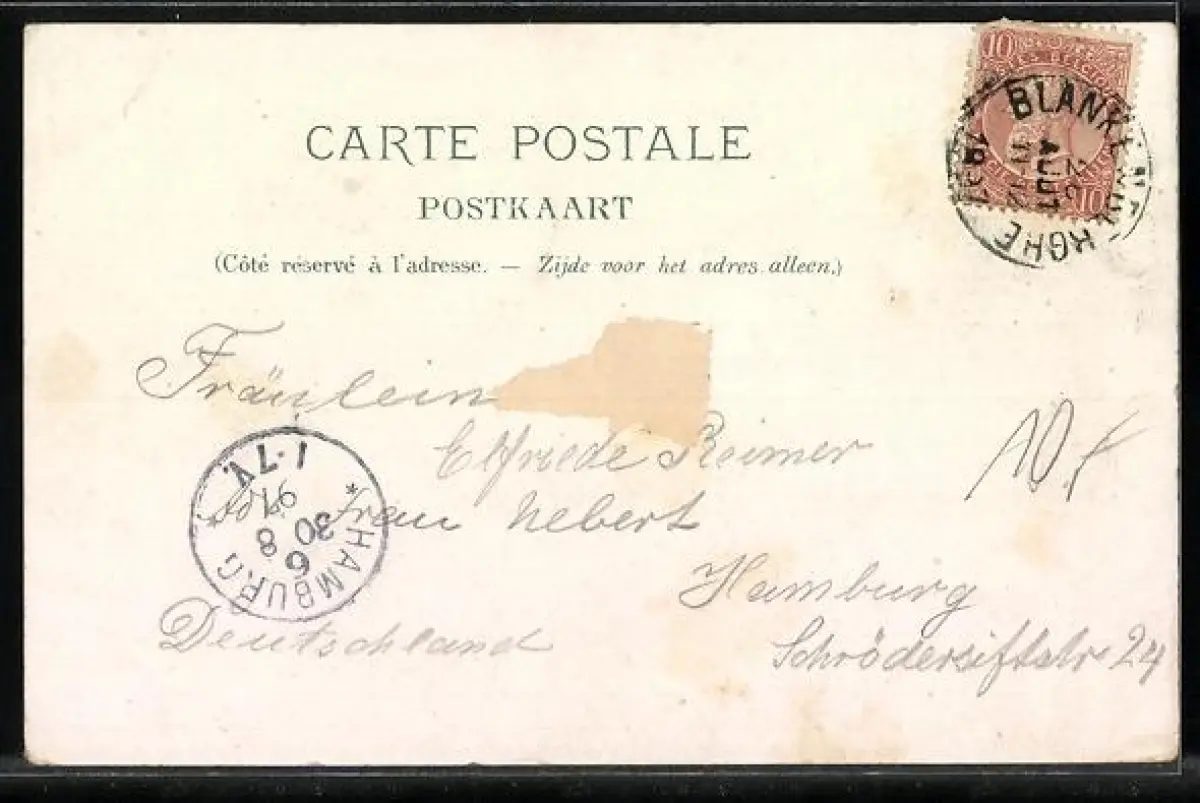 10 10
BLANKENBERGHE
CARTE POSTALE
POSTKAART
(Côté réservé à l'adresse. — Zijde voor het adres alleen.)
Fräulein
Elfriede Reimer
Adr. Frau Nebert
Hamburg
Deutschland
Schröderstiftstr 24
10.
HAMBURG
30 8
6
1·7V.
10